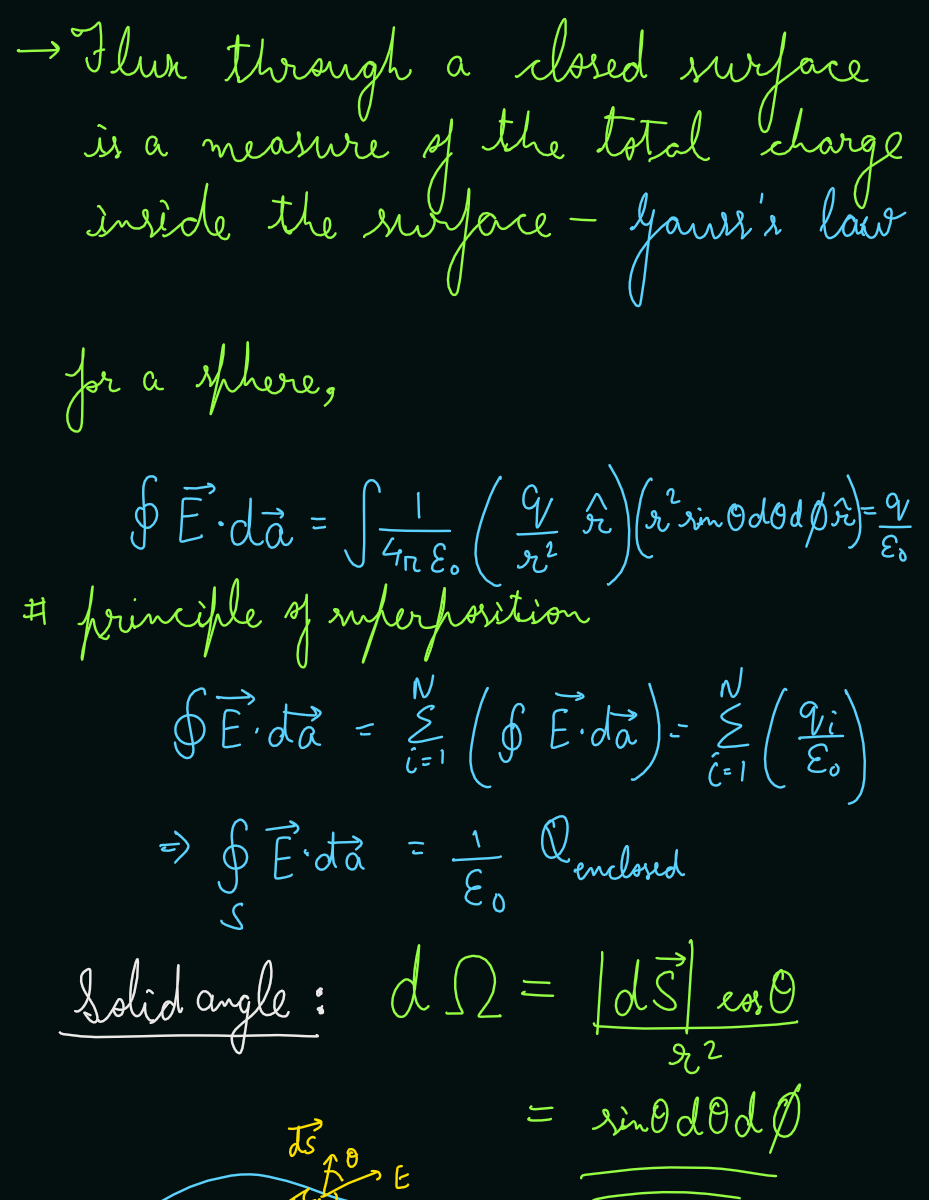 → Flux through a closed surface
is a measure of the total charge
inside the surface – Gauss's law
for a sphere,
∮ E⃗·da⃗ = ∫ 1/4πε₀ (q/r² r̂)(r² sinθ dθ dϕ r̂) = q/ε₀
# principle of superposition
∮ E⃗·da⃗ = Σ_{i=1}^{N} (∮ E⃗·da⃗) = Σ_{i=1}^{N} (qᵢ/ε₀)
⇒ ∮_S E⃗·da⃗ = 1/ε₀ Q_enclosed
Solid angle : dΩ = |dS⃗| cosθ / r²
= sinθ dθ dϕ
dS⃗ θ E